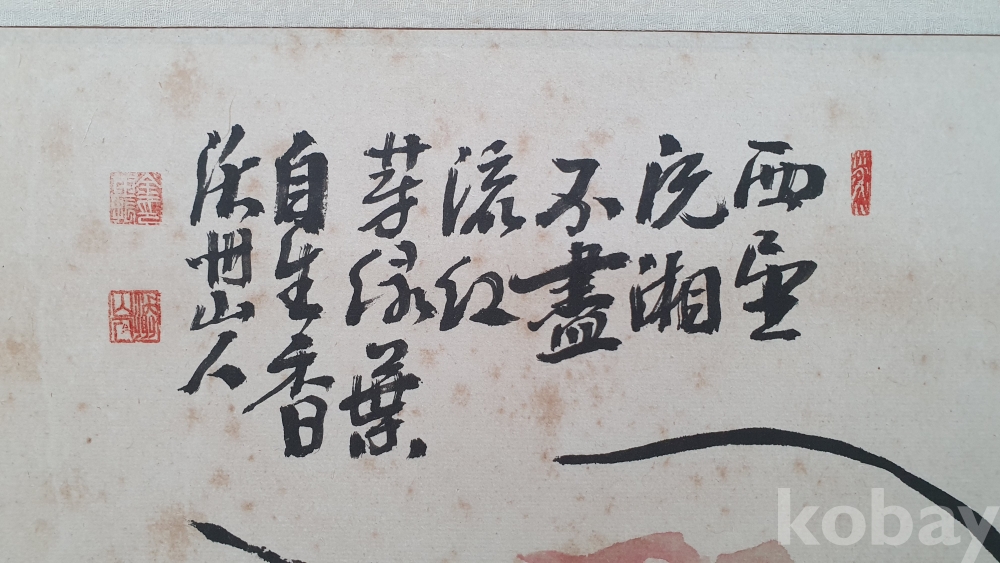 西望
沅湘
不盡
流紅
芽綠葉
自生香
沃州山人
kobay